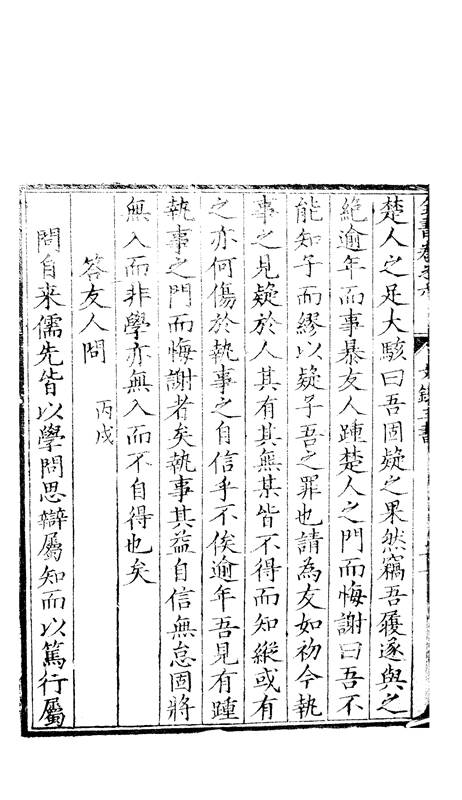 楚人之足大駭曰吾固疑之果然竊吾履遂與之
絶逾年而事暴友人踵楚人之門而悔謝曰吾不
能知子而繆以疑子吾之罪也請為友如初今執
事之見疑於人其有其無某皆不得而知縱或有
之亦何傷於執事之自信乎不俟逾年吾見有踵
執事之門而悔謝者矣執事其益自信無怠固將
無入而非學亦無入而不自得也矣
答友人問 丙戌
問自来儒先皆以學問思辯屬知而以篤行屬